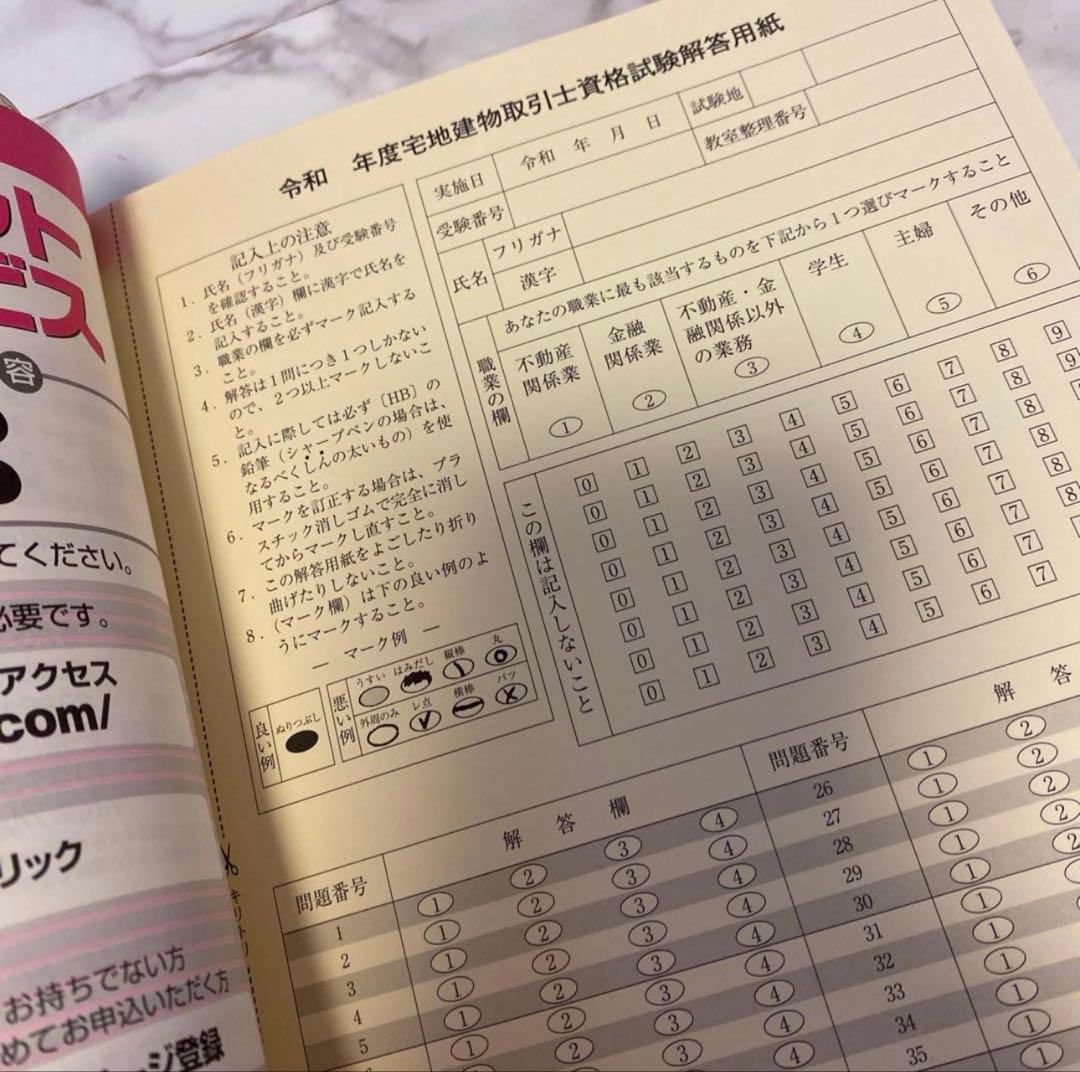 ット
ビス
容
てください。
必要です。
アクセス
.com/
リック
お持ちでない方
めてお申込いただく方
ージ登録
キリトリ
令和　年度宅地建物取引士資格試験解答用紙
記入上の注意
1．氏名（フリガナ）及び受験番号
を確認すること。
2．氏名（漢字）欄に漢字で氏名を
記入すること。
3．職業の欄を必ずマーク記入する
こと。
4．解答は1問につき1つしかない
ので、2つ以上マークしないこ
と。
5．記入に際しては必ず〔HB〕の
鉛筆（シャープペンの場合は、
なるべくしんの太いもの）を使
用すること。
6．マークを訂正する場合は、プラ
スチック消しゴムで完全に消し
てからマークし直すこと。
7．この解答用紙をよごしたり折り
曲げたりしないこと。
8．（マーク欄）は下の良い例のよ
うにマークすること。
― マーク例 ―
良い例
ぬりつぶし
悪い例
うすい はみだし 縦棒 丸
外周のみ レ点 横棒 バツ
実施日 令和 年 月 日 試験地
受験番号 教室整理番号
氏名 フリガナ
漢字
職業の欄
あなたの職業に最も該当するものを下記から1つ選びマークすること
不動産
関係業
①
金融
関係業
②
不動産・金
融関係以外
の業務
③
学生
④
主婦
⑤
その他
⑥
この欄は記入しないこと
0 1 2 3 4 5 6 7 8 9
0 1 2 3 4 5 6 7 8 9
0 1 2 3 4 5 6 7 8
0 1 2 3 4 5 6 7 8
0 1 2 3 4 5 6 7 8
0 1 2 3 4 5 6 7 8
0 1 2 3 4 5 6 7
0 1 2 3 4 5 6 7
問題番号 解答欄
1 ① ② ③ ④
2 ① ② ③ ④
3 ① ② ③ ④
4 ① ② ③ ④
5 ① ② ③ ④
① ② ③ ④
問題番号 解答
26 ① ②
27 ① ②
28 ① ②
29 ① ②
30 ① ②
31 ①
32 ①
33 ①
34 ①
35 ①